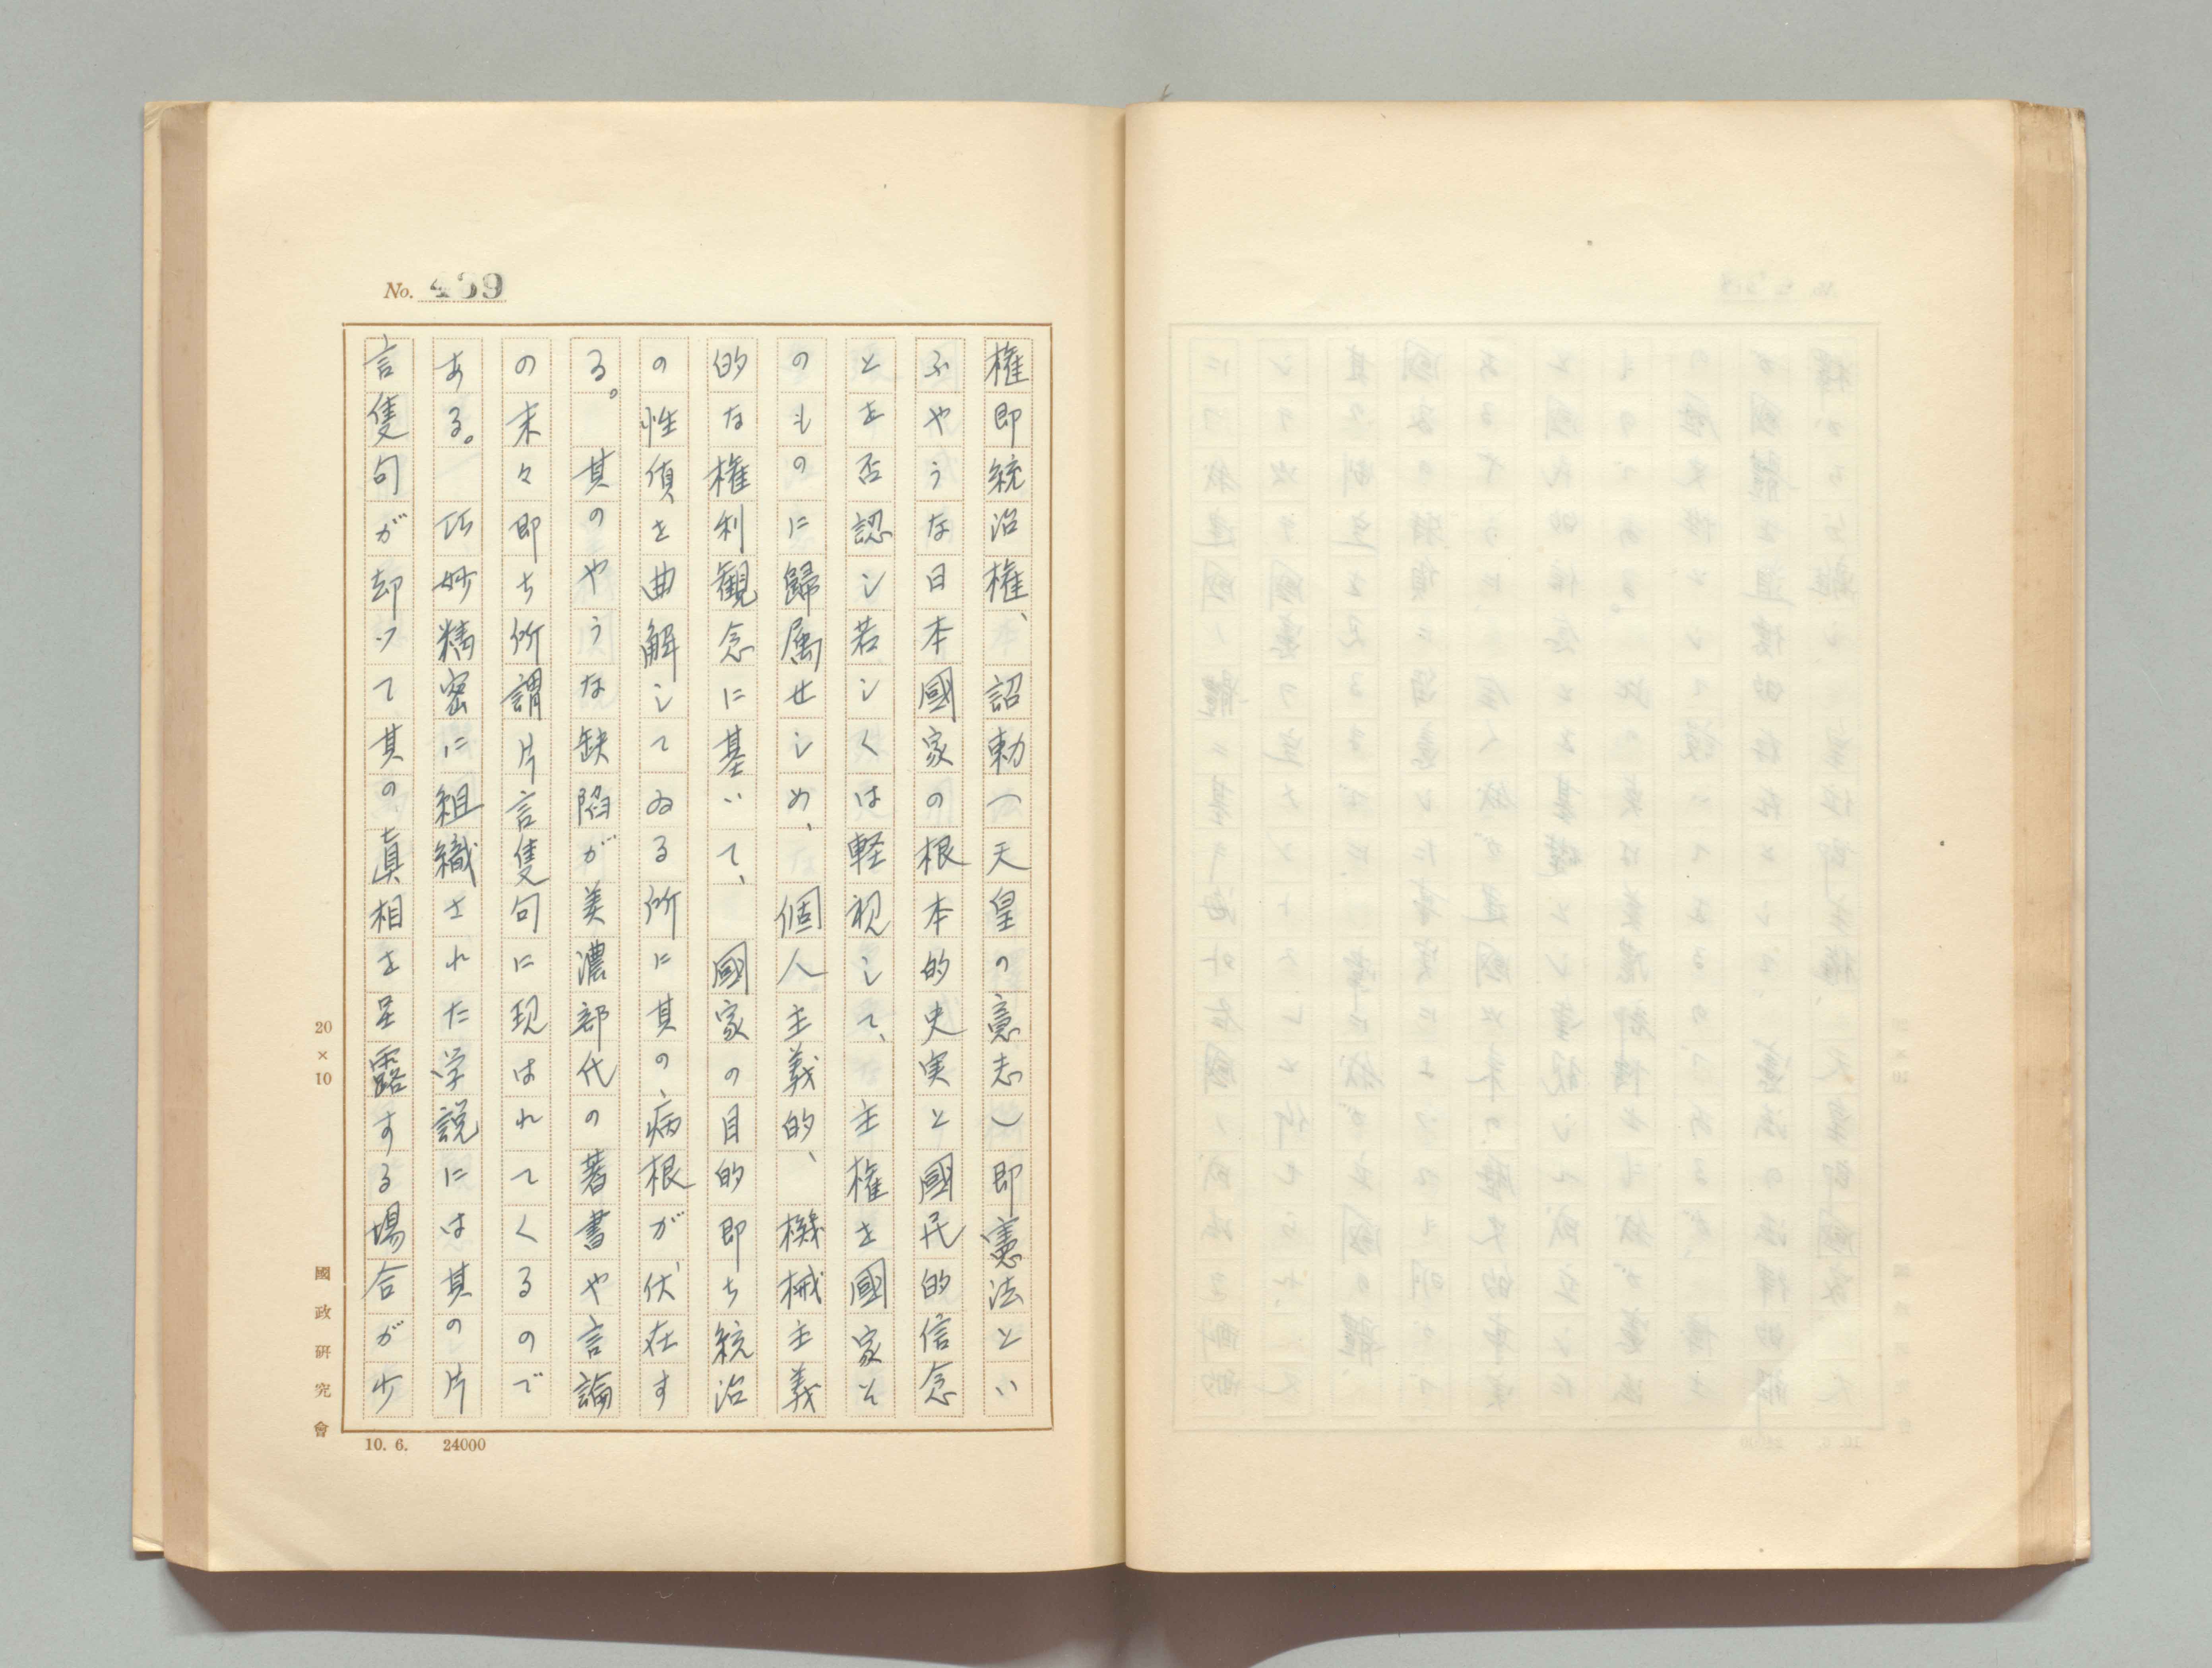 No. 439
権即統治権、詔勅(天皇の意志)即憲法とい
ふやうな日本國家の根本本的史実と國民的信念
とを否認し若しくは軽視して、主権を國家そ
のものに歸属せしめ、個人主義的、機械主義
的な権利観念に基いて、國家の目的即ち統治
の性質を曲解してゐる所に其の病根が伏在す
る。其のやうな缺陥が美濃部代の著書や言論
の末々即ち所謂片言隻句に現はれてくるので
ある。巧妙精密に組織された学説には其の片
言隻句が却って其の眞相を呈露する場合が少
20×10
國政研究會
10. 6. 24000